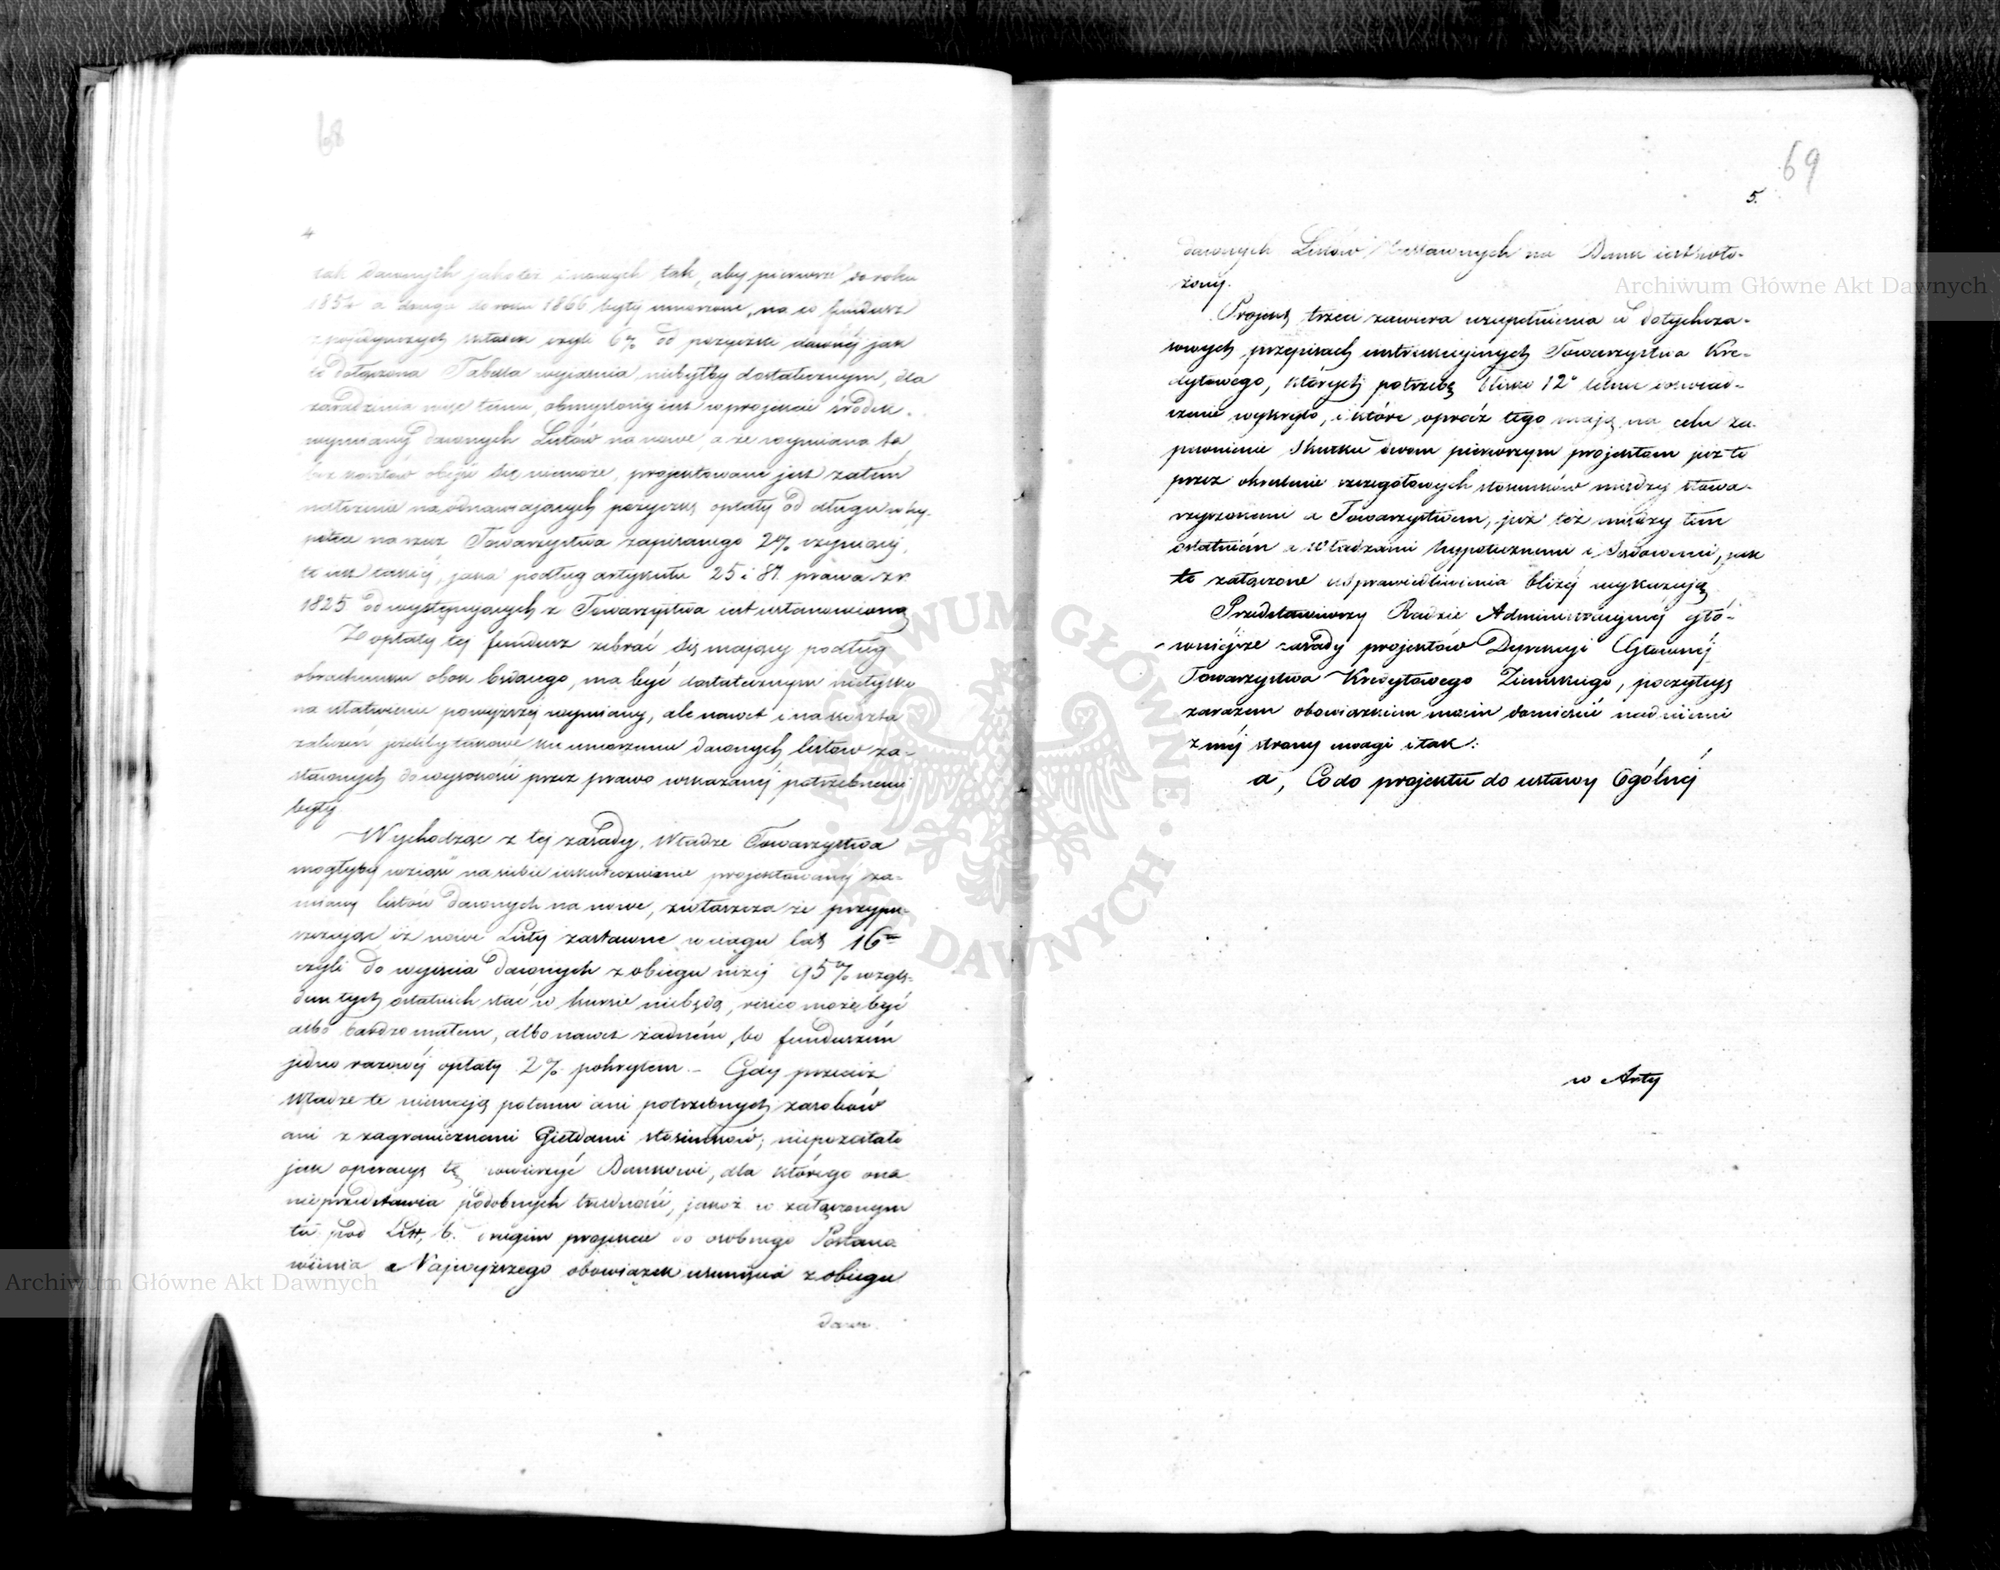 68
4
tak dawnych jako też i nowych tak, aby pierwsze do roku
1854 a drugie do roku 1866 były umorzone, na co fundusz
z pojedynczych wkładek czyli 6% od pożyczki dawnej jak
to dołączona Tabella wyjaśnia niebyłby dostatecznym, dla
zaradzenia więc temu, obmyślony jest w projekcie środek
wymiany dawnych Listów na nowe, a że wymiana ta
bez kosztów obejść się niemoże, projektowane jest zatem
nałożenie na odnawiających pożyczkę opłaty od długu w hy-
potece na rzecz Towarzystwa zapisanego 2% czyniącej,
to jest takiej, jaka podług artykułu 25 i 81. prawa z r.
1825 od występujących z Towarzystwa jest ustanowioną
Z opłaty tej fundusz zebrać się mający podług
obrachunku obok będącego, ma być dostatecznym nietylko
na ułatwienie powyższej wymiany, ale nawet i na koszta
zaliczeń jeżeliby takowe ku umorzeniu dawnych listów za-
stawnych do wysokości przez prawo wskazanej potrzebnemi
były.
Wychodząc z tej zasady, Władze Towarzystwa
mogłyby wziąść na siebie uskutecznienie projektowanej za-
miany listów dawnych na nowe, zwłaszcza że przypu-
szczając iż nowe Listy zastawne w ciągu lat 16
czyli do wyjścia dawnych z obiegu niżej 95% wzglę-
dem tych ostatnich stać w kursie niebędą, risico może być
albo bardzo małem, albo nawet żadnem, bo funduszem
jedno razowej opłaty 2% pokrytem. – Gdy przecież
Władze te niemają potemu ani potrzebnych zasobów
ani z zagranicznemi Giełdami stosunków; niepozostało
jak operacyę tę powierzyć Bankowi, dla którego ona
nieprzedstawia podobnych trudności, jakoż w załączonym
tu pod Litt, b. drugim projekcie do osobnego Postano
wienia Najwyższego obowiązek usunięcia z obiegu
dawn.
69
5.
dawnych Listów Zastawnych na Bank jest wło-
żony.
Projekt trzeci zawiera uzupełnienia w dotychcza-
sowych przepisach instrukcyjnych Towarzystwa Kre-
dytowego, których potrzebę blisko 12o letnie doświad-
czenie wykryło, i które oprócz tego mają na celu za
pewnienie skutku dwom pierwszym projektom już to
przez określenie szczegółowych stosunków między stowa-
rzyszonemi a Towarzystwem, już też między tem
ostatniem a Władzami hypotecznemi i Sądowemi, jak
to załączone usprawiedliwienia bliżej wykazują.
Przedstawiwszy Radzie Administracyjnej głó-
wniejsze zasady projektów Dyrekcyi Głównej
Towarzystwa Kredytowego Ziemskiego, poczytuję
zarazem obowiązkiem moim domieścić nad niemi
z mej strony uwagi i tak:
a, Co do projektu do ustawy Ogólnej
w Arty
Archiwum Główne Akt Dawnych
Archiwum Główne Akt Dawnych
ARCHIWUM GŁÓWNE AKT DAWNYCH